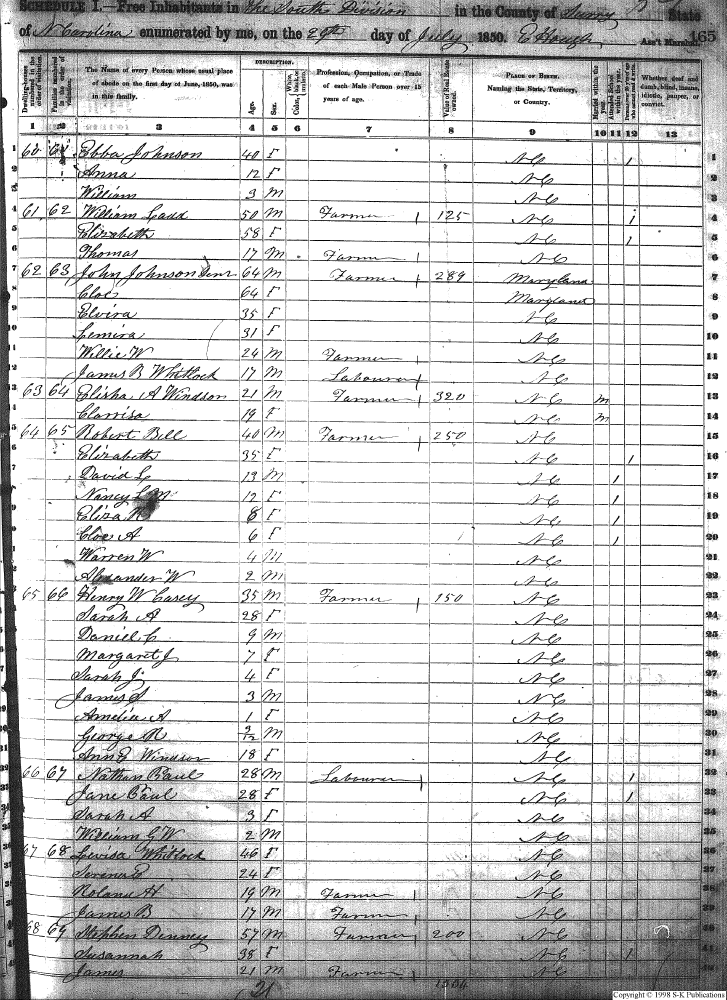 SCHEDULE I.—Free Inhabitants in The South Division in the County of Surry State
of N Carolina enumerated by me, on the 29th day of July 1850. E Hough Ass't Marshal. 165
Dwelling-houses numbered in the order of visitation. Families numbered in the order of visitation. The Name of every Person whose usual place of abode on the first day of June, 1850, was in this family. DESCRIPTION. Age. Sex. Color, White, black, or mulatto. Profession, Occupation, or Trade of each Male Person over 15 years of age. Value of Real Estate owned. PLACE OF BIRTH. Naming the State, Territory, or Country. Married within the year. Attended School within the year. Whether deaf and dumb, blind, insane, idiotic, pauper, or convict.
1 2 3 4 5 6 7 8 9 10 11 12 13
1 60 61 Ebba Johnson 40 F NC 1 1
2 Anna 12 F NC 2
3 William 3 M NC 3
4 61 62 William Cadd 50 M Farmer 125 NC 1 4
5 Elizabeth 58 F NC 1 5
6 Thomas 17 M Farmer NC 6
7 62 63 John Johnson Senr 64 M Farmer 289 Maryland 7
8 Cloe 64 F Maryland 8
9 Elvira 35 F NC 9
10 Lemira 31 F NC 10
11 Willie W 24 M Farmer NC 11
12 James B Whitlock 17 M Labourer NC 12
13 63 64 Elisha A Windson 21 M Farmer 320 NC M 13
14 Clarrisa 19 F NC M 14
15 64 65 Robert Bell 40 M Farmer 250 NC 15
16 Elizabeth 35 F NC 1 16
17 David L 13 M NC 1 17
18 Nancy L M 12 F NC 1 18
19 Eliza R 8 F NC 1 19
20 Cloe A 6 F NC 1 20
21 Warren W 4 M NC 21
22 Alexander W 2 M NC 22
23 65 66 Henry W Casey 35 M Farmer 150 NC 23
24 Sarah A 28 F NC 24
25 Daniel C 9 M NC 25
26 Margaret J 7 F NC 26
27 Sarah J 4 F NC 27
28 James S 3 M NC 28
29 Amelia A 1 F NC 29
30 George R 2/12 M NC 30
31 Ann E Windson 18 F NC 31
32 66 67 Nathan Caul 28 M Labourer NC 1 32
33 Jane Caul 28 F NC 1 33
34 Sarah A 3 F NC
35 William G W 2 M NC
67 68 Levisa Whitlock 46 F NC
Serena E 24 F NC
Roland H 19 M Farmer NC
James B 17 M Farmer NC
68 69 Stephen Denney 57 M Farmer 200 NC
Susannah 38 F NC 1
James 21 M Farmer NC
21 1334
Copyright © 1998 S-K Publications